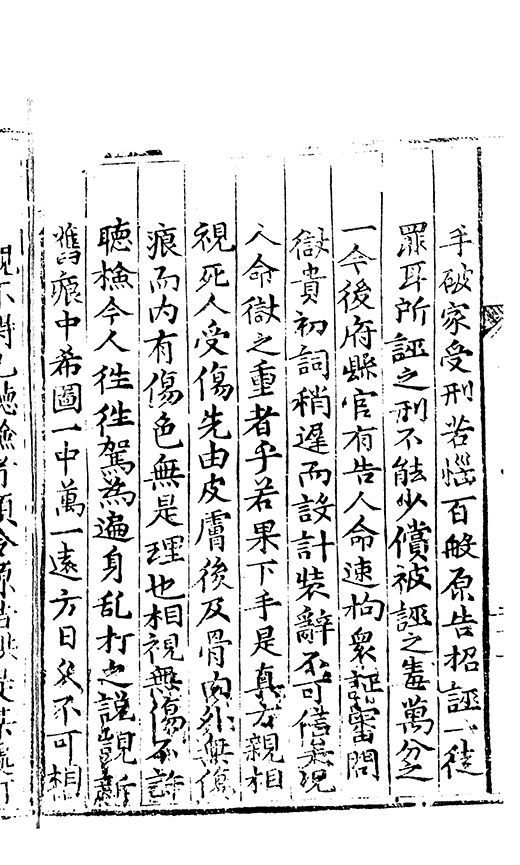 手破家受刑苦惱百般原告招誣一徒
罪耳所誣之刑不能少償被誣之毒萬分之
一今後府縣官有告人命速拘衆証審問
獄貴初詞稍遲而設計裝辭不可信矣況
人命獄之重者乎若果下手是真方親相
視死人受傷先由皮膚後及骨肉外無傷
痕而內有傷色無是理也相視無傷不許
聽檢今人往往駕為遍身乱打之説覬新
舊痕中希圖一中萬一遠方日久不可相
視不得已聽檢者須令原告